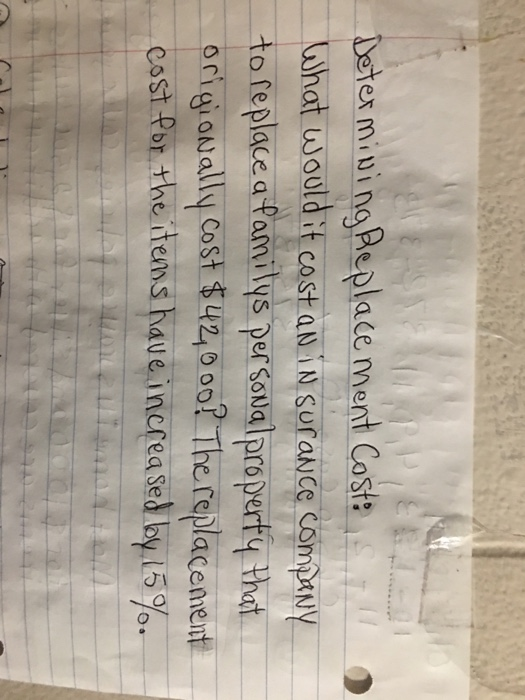 Determining Replacement Cost:
What would it cost an insurance company
to replace a familys personal property that
origionally cost $42,000? The replacement
cost for the items have increased by 15%.